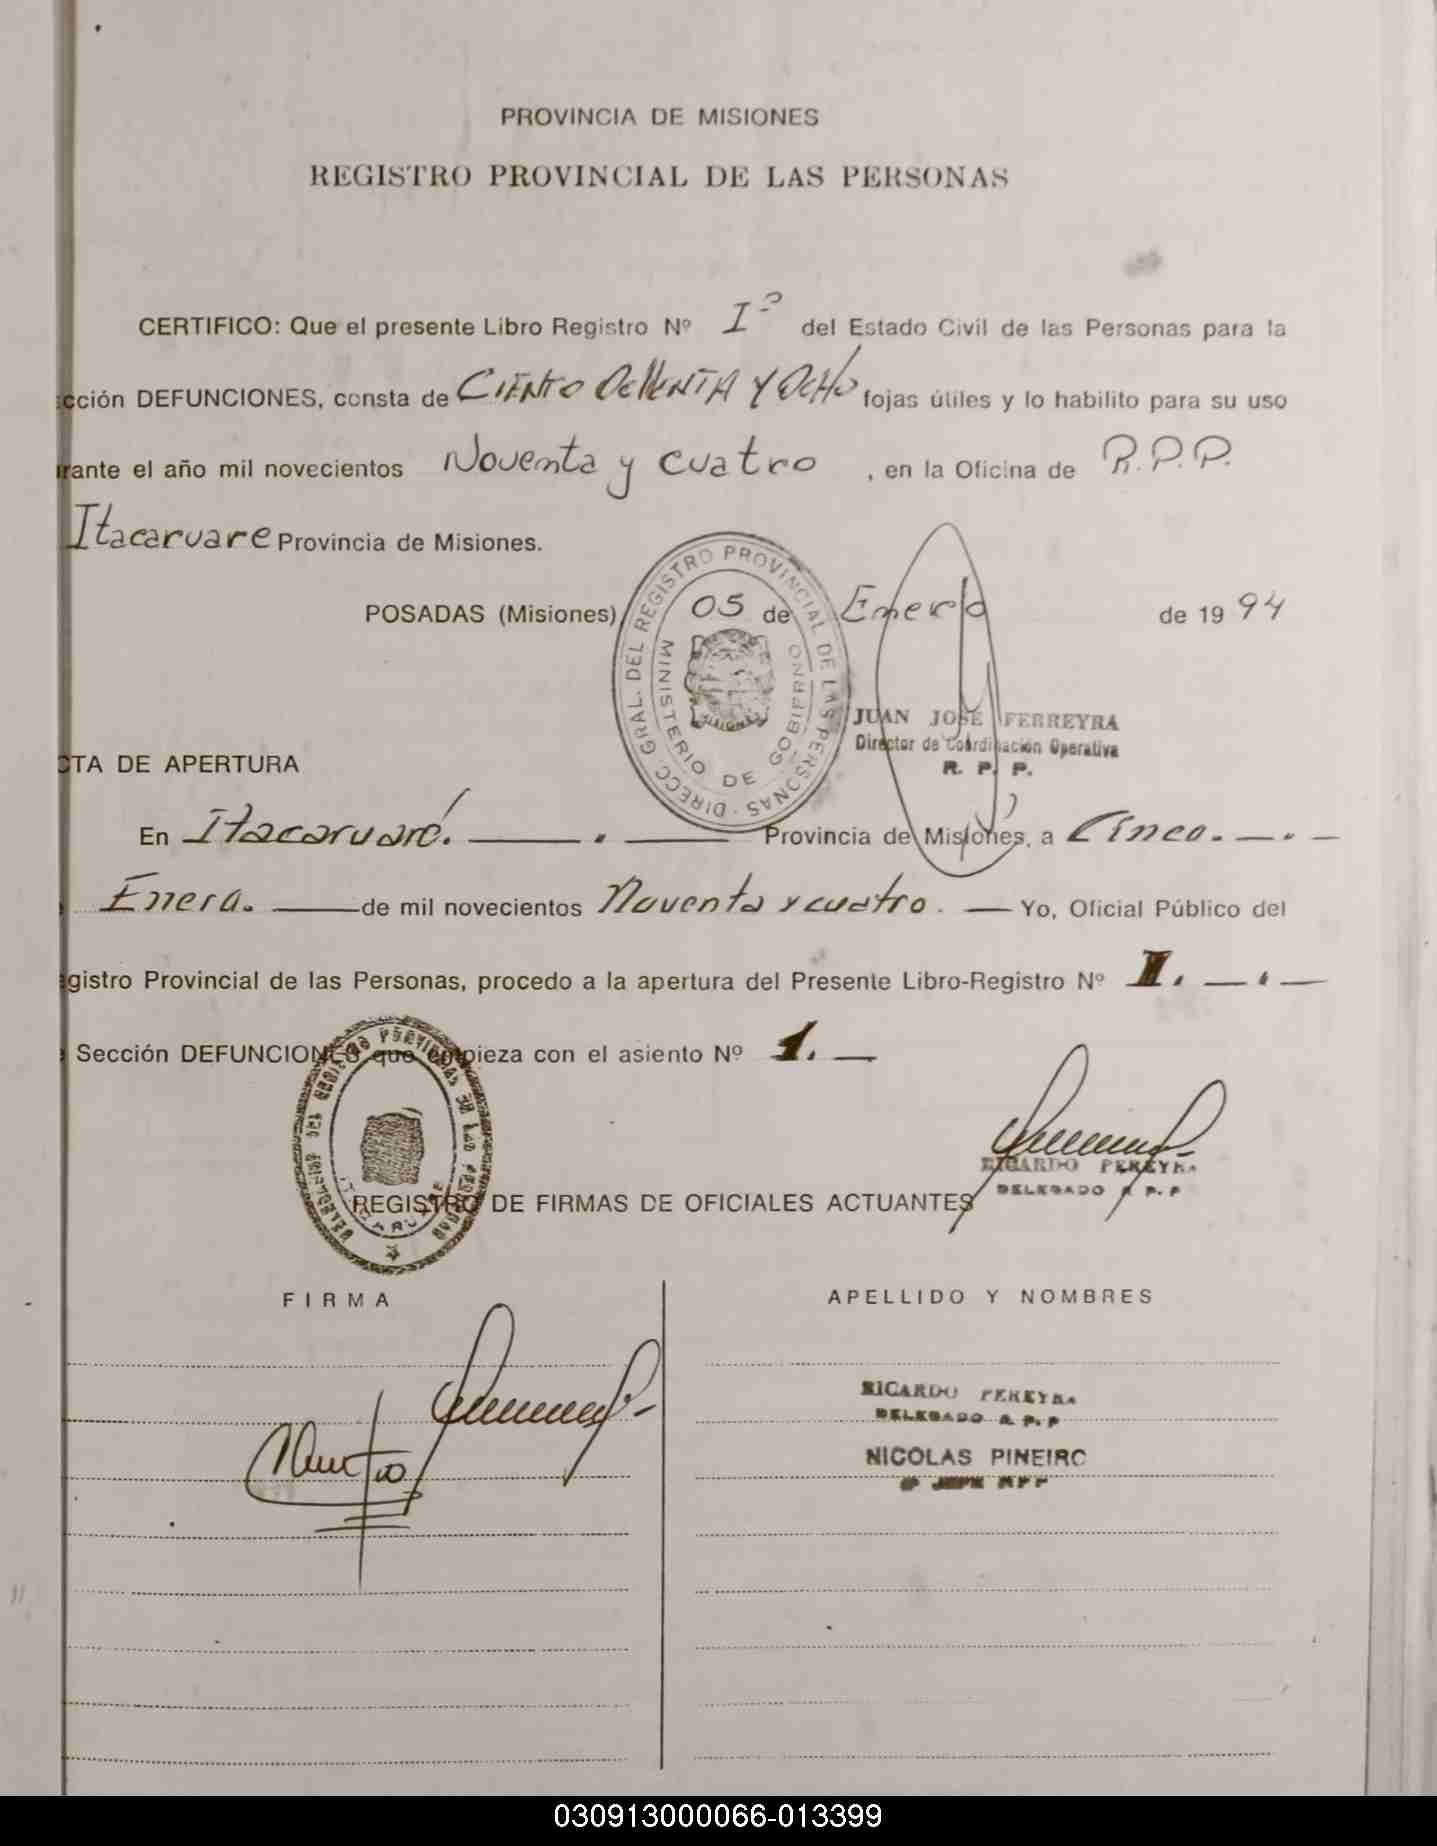 PROVINCIA DE MISIONES
REGISTRO PROVINCIAL DE LAS PERSONAS
CERTIFICO: Que el presente Libro Registro Nº I° del Estado Civil de las Personas para la
cción DEFUNCIONES, consta de CIENTO Y OCHO fojas útiles y lo habilito para su uso
rante el año mil novecientos Noventa y cuatro , en la Oficina de R.P.P.
Itacaruare Provincia de Misiones.
POSADAS (Misiones) 05 de Enero de 1994
DIRECC. GRAL. DEL REGISTRO PROVINCIAL DE LAS PERSONAS
MINISTERIO DE GOBIERNO
MISIONES
JUAN JOSE FERREYRA
Director de Coordinación Operativa
R. P. P.
CTA DE APERTURA
En Itacaruaré. — . — Provincia de Misiones, a Cinco. — . —
Enero. — de mil novecientos Noventa y cuatro. — Yo, Oficial Público del
gistro Provincial de las Personas, procedo a la apertura del Presente Libro-Registro Nº I. — . —
Sección DEFUNCIONES que empieza con el asiento Nº 1. —
RICARDO PEREYRA
DELEGADO R. P. P
REGISTRO DE FIRMAS DE OFICIALES ACTUANTES
FIRMA APELLIDO Y NOMBRES
RICARDO PEREYRA
DELEGADO R. P. P
NICOLAS PINEIRO
JEFE RPP
030913000066-013399